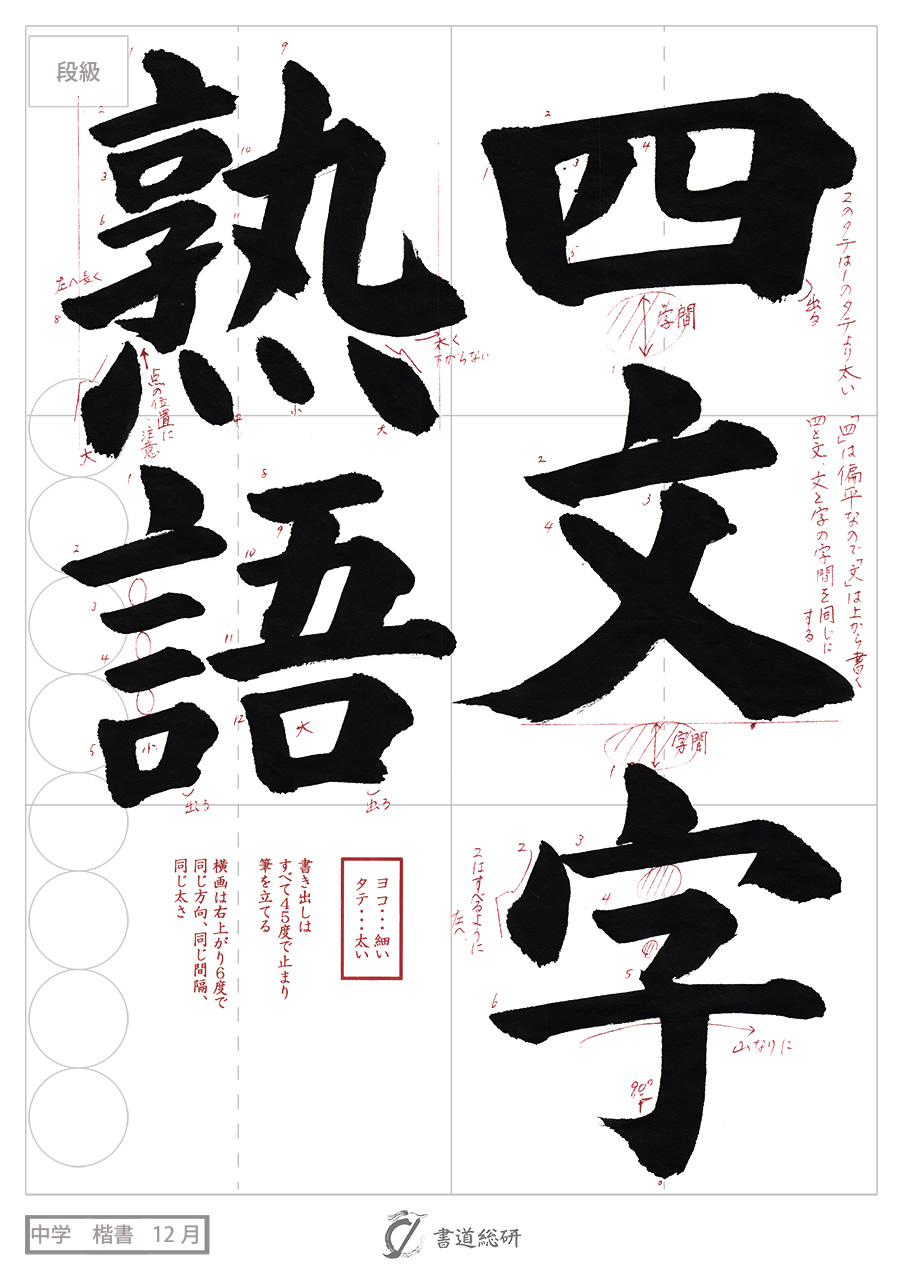 四文字
熟語
段級
2のタテは1のタテより太い
出る
字間
「四」は偏平なので「文」は上から書く
四と文、文と字の字間を同じに
する
字間
2はすべるように
左へ
山なりに
90°
左へ長く
点の位置に
注意
太く
下がらない
大
中
小
大
小
大
出る
出る
ヨコ・・・細い
タテ・・・太い
書き出しは
すべて45度で止まり
筆を立てる
横画は右上がり6度で
同じ方向、同じ間隔、
同じ太さ
中学 楷書 12月
書道総研